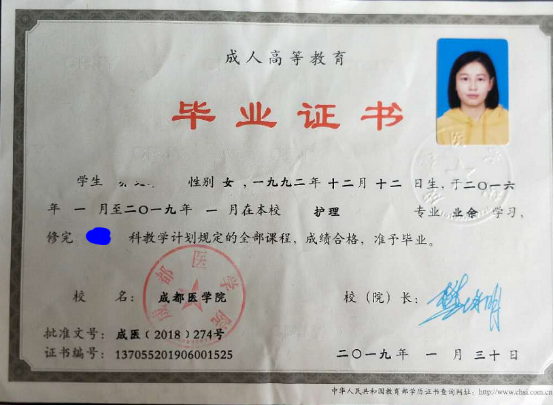 成人高等教育
毕业证书
学生 性别 女，一九九二年 十二月 十二 日生，于二〇一六
年 一 月至二〇一九年 一 月在本校 护理 专业 业余 学习，
修完 科教学计划规定的全部课程，成绩合格，准予毕业。
校 名：成都医学院
校（院）长：
批准文号：成医（2018）274号
证书编号：137055201906001525
二〇一九年 一 月 三十 日
中华人民共和国教育部学历证书查询网址：http://www.chsi.com.cn
成都医学院